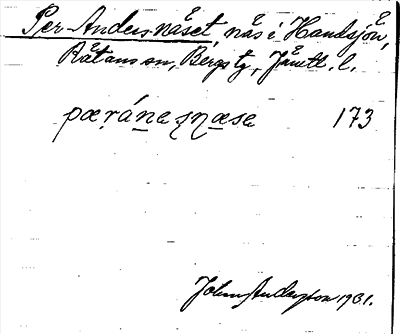 Per-Andersnäset, näs i Handsjön,
Rätans sn, Bergs tg, Jämtl. l.
pæránesnæse 173
John Andersson 1931.